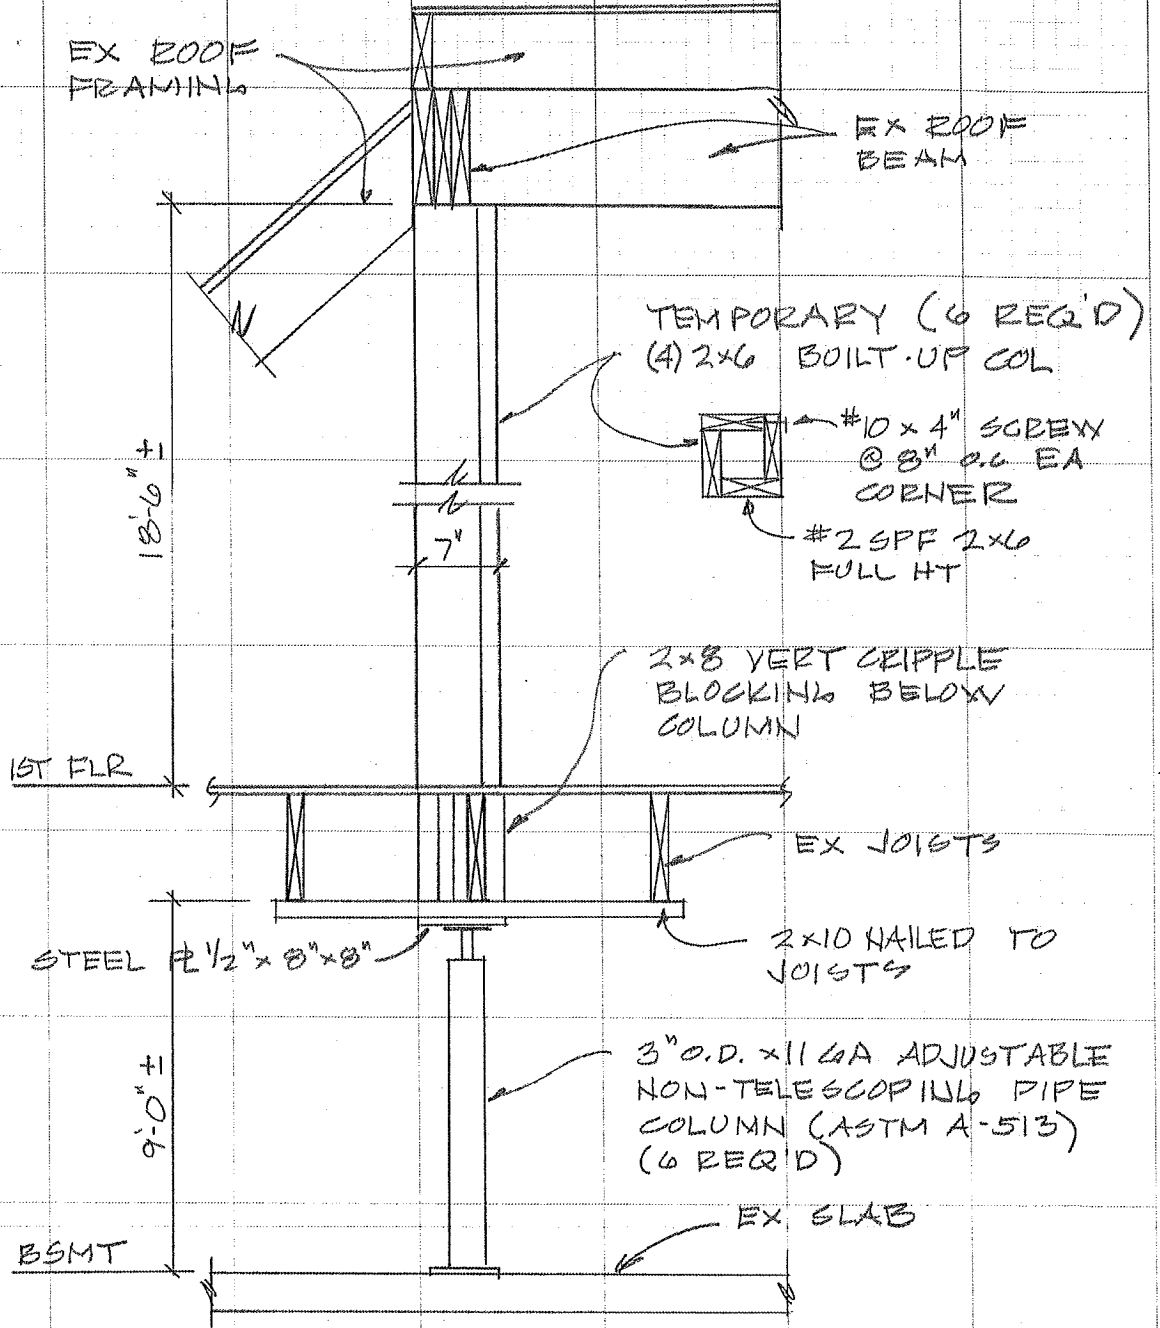 EX ROOF
FRAMING
EX ROOF
BEAM
TEMPORARY (6 REQ'D)
(4) 2x6 BUILT-UP COL
#10 x 4" SCREW
@ 8" o.c EA
CORNER
#2 SPF 2x6
FULL HT
18'-6" ±
7"
2x8 VERT CRIPPLE
BLOCKING BELOW
COLUMN
1ST FLR
EX JOISTS
2x10 NAILED TO
JOISTS
STEEL PL 1/2" x 8" x 8"
9'-0" ±
3" O.D. x 11 GA ADJUSTABLE
NON-TELESCOPING PIPE
COLUMN (ASTM A-513)
(6 REQ'D)
EX SLAB
BSMT